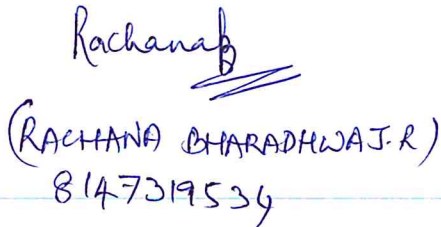 RachanaB
(RACHANA BHARADHWAJ.R)
8147319534